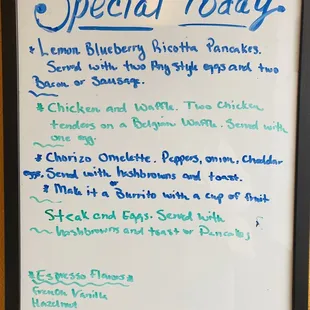 Special Today
* Lemon Blueberry Ricotta Pancakes.
Served with two Any Style eggs and two
Bacon or Sausage.
* Chicken and Waffle. Two Chicken
tenders on a Belgium Waffle. Served with
one egg.
* Chorizo Omelette. Peppers, onion, Cheddar
eggs. Served with hashbrowns and toast.
or
* Make it a Burrito with a cup of fruit
Steak and Eggs. Served with
hashbrowns and toast or Pancakes
*Espresso Flavors*
French Vanilla
Hazelnut